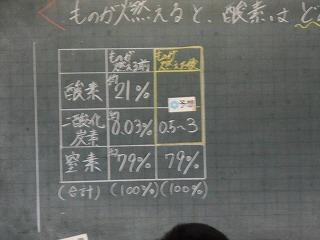 ものが燃えると、酸素は ど
ものが燃える前 ものが燃えた後
酸素 約21%
予想
二酸化炭素 約0.03% 0.5~3
窒素 約79% 79%
(合計) (100%) (100%)